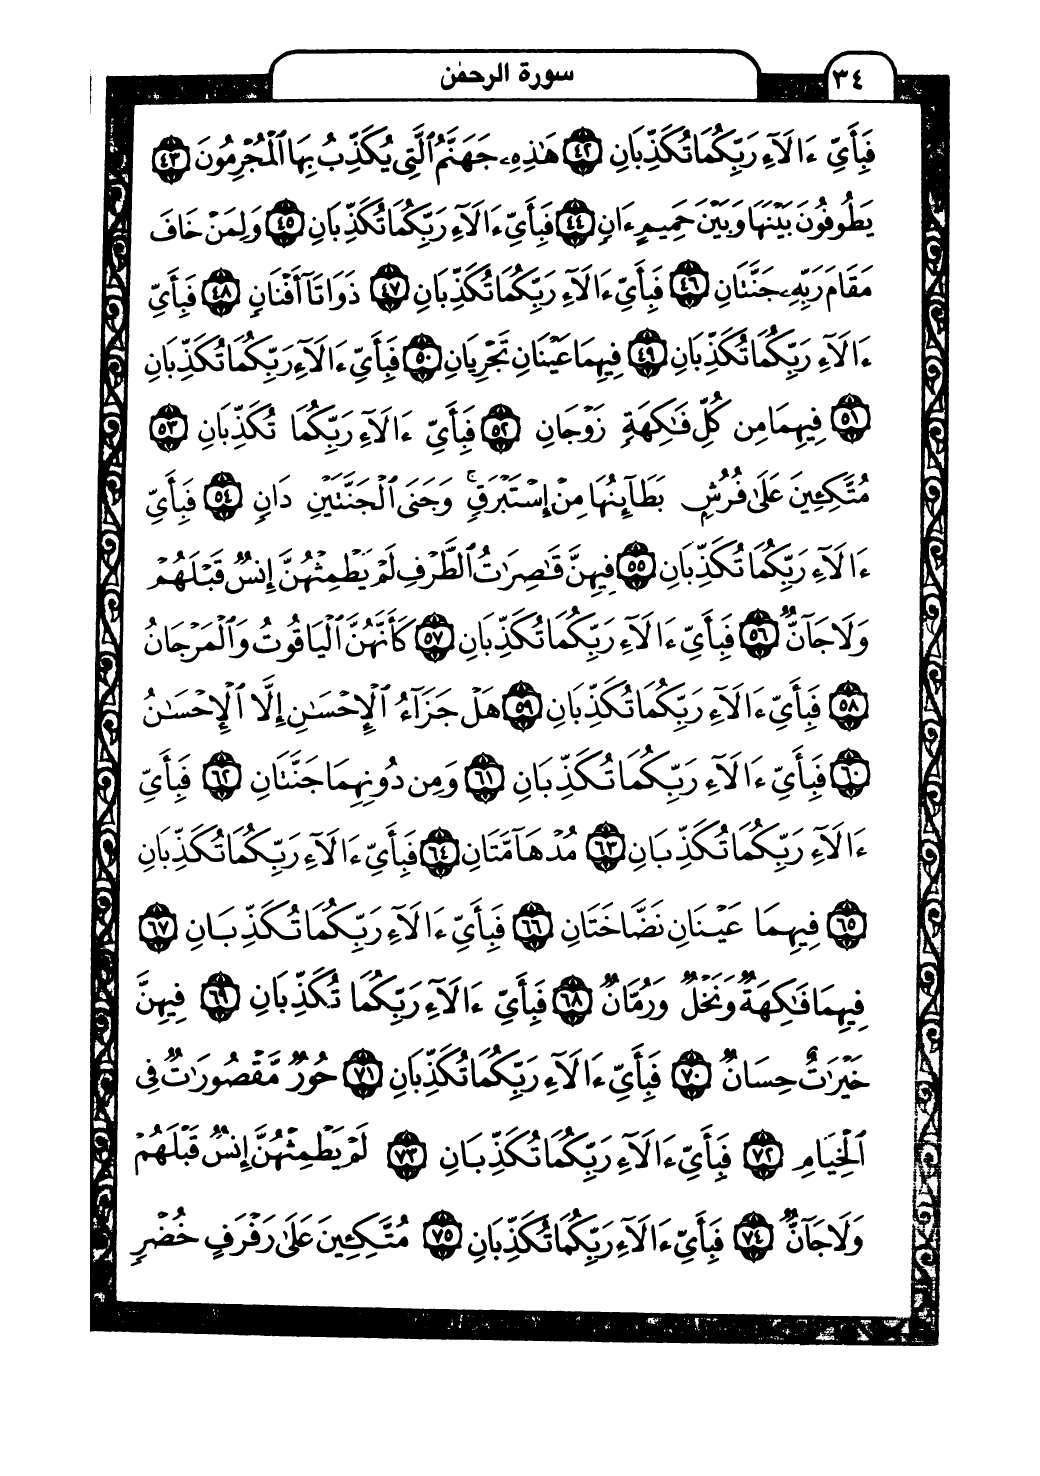 سورة الرحمٰن ٣٤
فَبِأَيِّ ءَالَآءِ رَبِّكُمَا تُكَذِّبَانِ ٤٢ هَٰذِهِۦ جَهَنَّمُ ٱلَّتِي يُكَذِّبُ بِهَا ٱلْمُجْرِمُونَ ٤٣
يَطُوفُونَ بَيْنَهَا وَبَيْنَ حَمِيمٍ ءَانٍ ٤٤ فَبِأَيِّ ءَالَآءِ رَبِّكُمَا تُكَذِّبَانِ ٤٥ وَلِمَنْ خَافَ
مَقَامَ رَبِّهِۦ جَنَّتَانِ ٤٦ فَبِأَيِّ ءَالَآءِ رَبِّكُمَا تُكَذِّبَانِ ٤٧ ذَوَاتَآ أَفْنَانٍ ٤٨ فَبِأَيِّ
ءَالَآءِ رَبِّكُمَا تُكَذِّبَانِ ٤٩ فِيهِمَا عَيْنَانِ تَجْرِيَانِ ٥٠ فَبِأَيِّ ءَالَآءِ رَبِّكُمَا تُكَذِّبَانِ
٥١ فِيهِمَا مِن كُلِّ فَٰكِهَةٍ زَوْجَانِ ٥٢ فَبِأَيِّ ءَالَآءِ رَبِّكُمَا تُكَذِّبَانِ ٥٣
مُتَّكِـِٔينَ عَلَىٰ فُرُشٍۭ بَطَآئِنُهَا مِنْ إِسْتَبْرَقٍۚ وَجَنَى ٱلْجَنَّتَيْنِ دَانٍ ٥٤ فَبِأَيِّ
ءَالَآءِ رَبِّكُمَا تُكَذِّبَانِ ٥٥ فِيهِنَّ قَٰصِرَٰتُ ٱلطَّرْفِ لَمْ يَطْمِثْهُنَّ إِنسٌ قَبْلَهُمْ
وَلَا جَآنٌّ ٥٦ فَبِأَيِّ ءَالَآءِ رَبِّكُمَا تُكَذِّبَانِ ٥٧ كَأَنَّهُنَّ ٱلْيَاقُوتُ وَٱلْمَرْجَانُ
٥٨ فَبِأَيِّ ءَالَآءِ رَبِّكُمَا تُكَذِّبَانِ ٥٩ هَلْ جَزَآءُ ٱلْإِحْسَٰنِ إِلَّا ٱلْإِحْسَٰنُ
٦٠ فَبِأَيِّ ءَالَآءِ رَبِّكُمَا تُكَذِّبَانِ ٦١ وَمِن دُونِهِمَا جَنَّتَانِ ٦٢ فَبِأَيِّ
ءَالَآءِ رَبِّكُمَا تُكَذِّبَانِ ٦٣ مُدْهَآمَّتَانِ ٦٤ فَبِأَيِّ ءَالَآءِ رَبِّكُمَا تُكَذِّبَانِ
٦٥ فِيهِمَا عَيْنَانِ نَضَّاخَتَانِ ٦٦ فَبِأَيِّ ءَالَآءِ رَبِّكُمَا تُكَذِّبَانِ ٦٧
فِيهِمَا فَٰكِهَةٌ وَنَخْلٌ وَرُمَّانٌ ٦٨ فَبِأَيِّ ءَالَآءِ رَبِّكُمَا تُكَذِّبَانِ ٦٩ فِيهِنَّ
خَيْرَٰتٌ حِسَانٌ ٧٠ فَبِأَيِّ ءَالَآءِ رَبِّكُمَا تُكَذِّبَانِ ٧١ حُورٌ مَّقْصُورَٰتٌ فِي
ٱلْخِيَامِ ٧٢ فَبِأَيِّ ءَالَآءِ رَبِّكُمَا تُكَذِّبَانِ ٧٣ لَمْ يَطْمِثْهُنَّ إِنسٌ قَبْلَهُمْ
وَلَا جَآنٌّ ٧٤ فَبِأَيِّ ءَالَآءِ رَبِّكُمَا تُكَذِّبَانِ ٧٥ مُتَّكِـِٔينَ عَلَىٰ رَفْرَفٍ خُضْرٍ